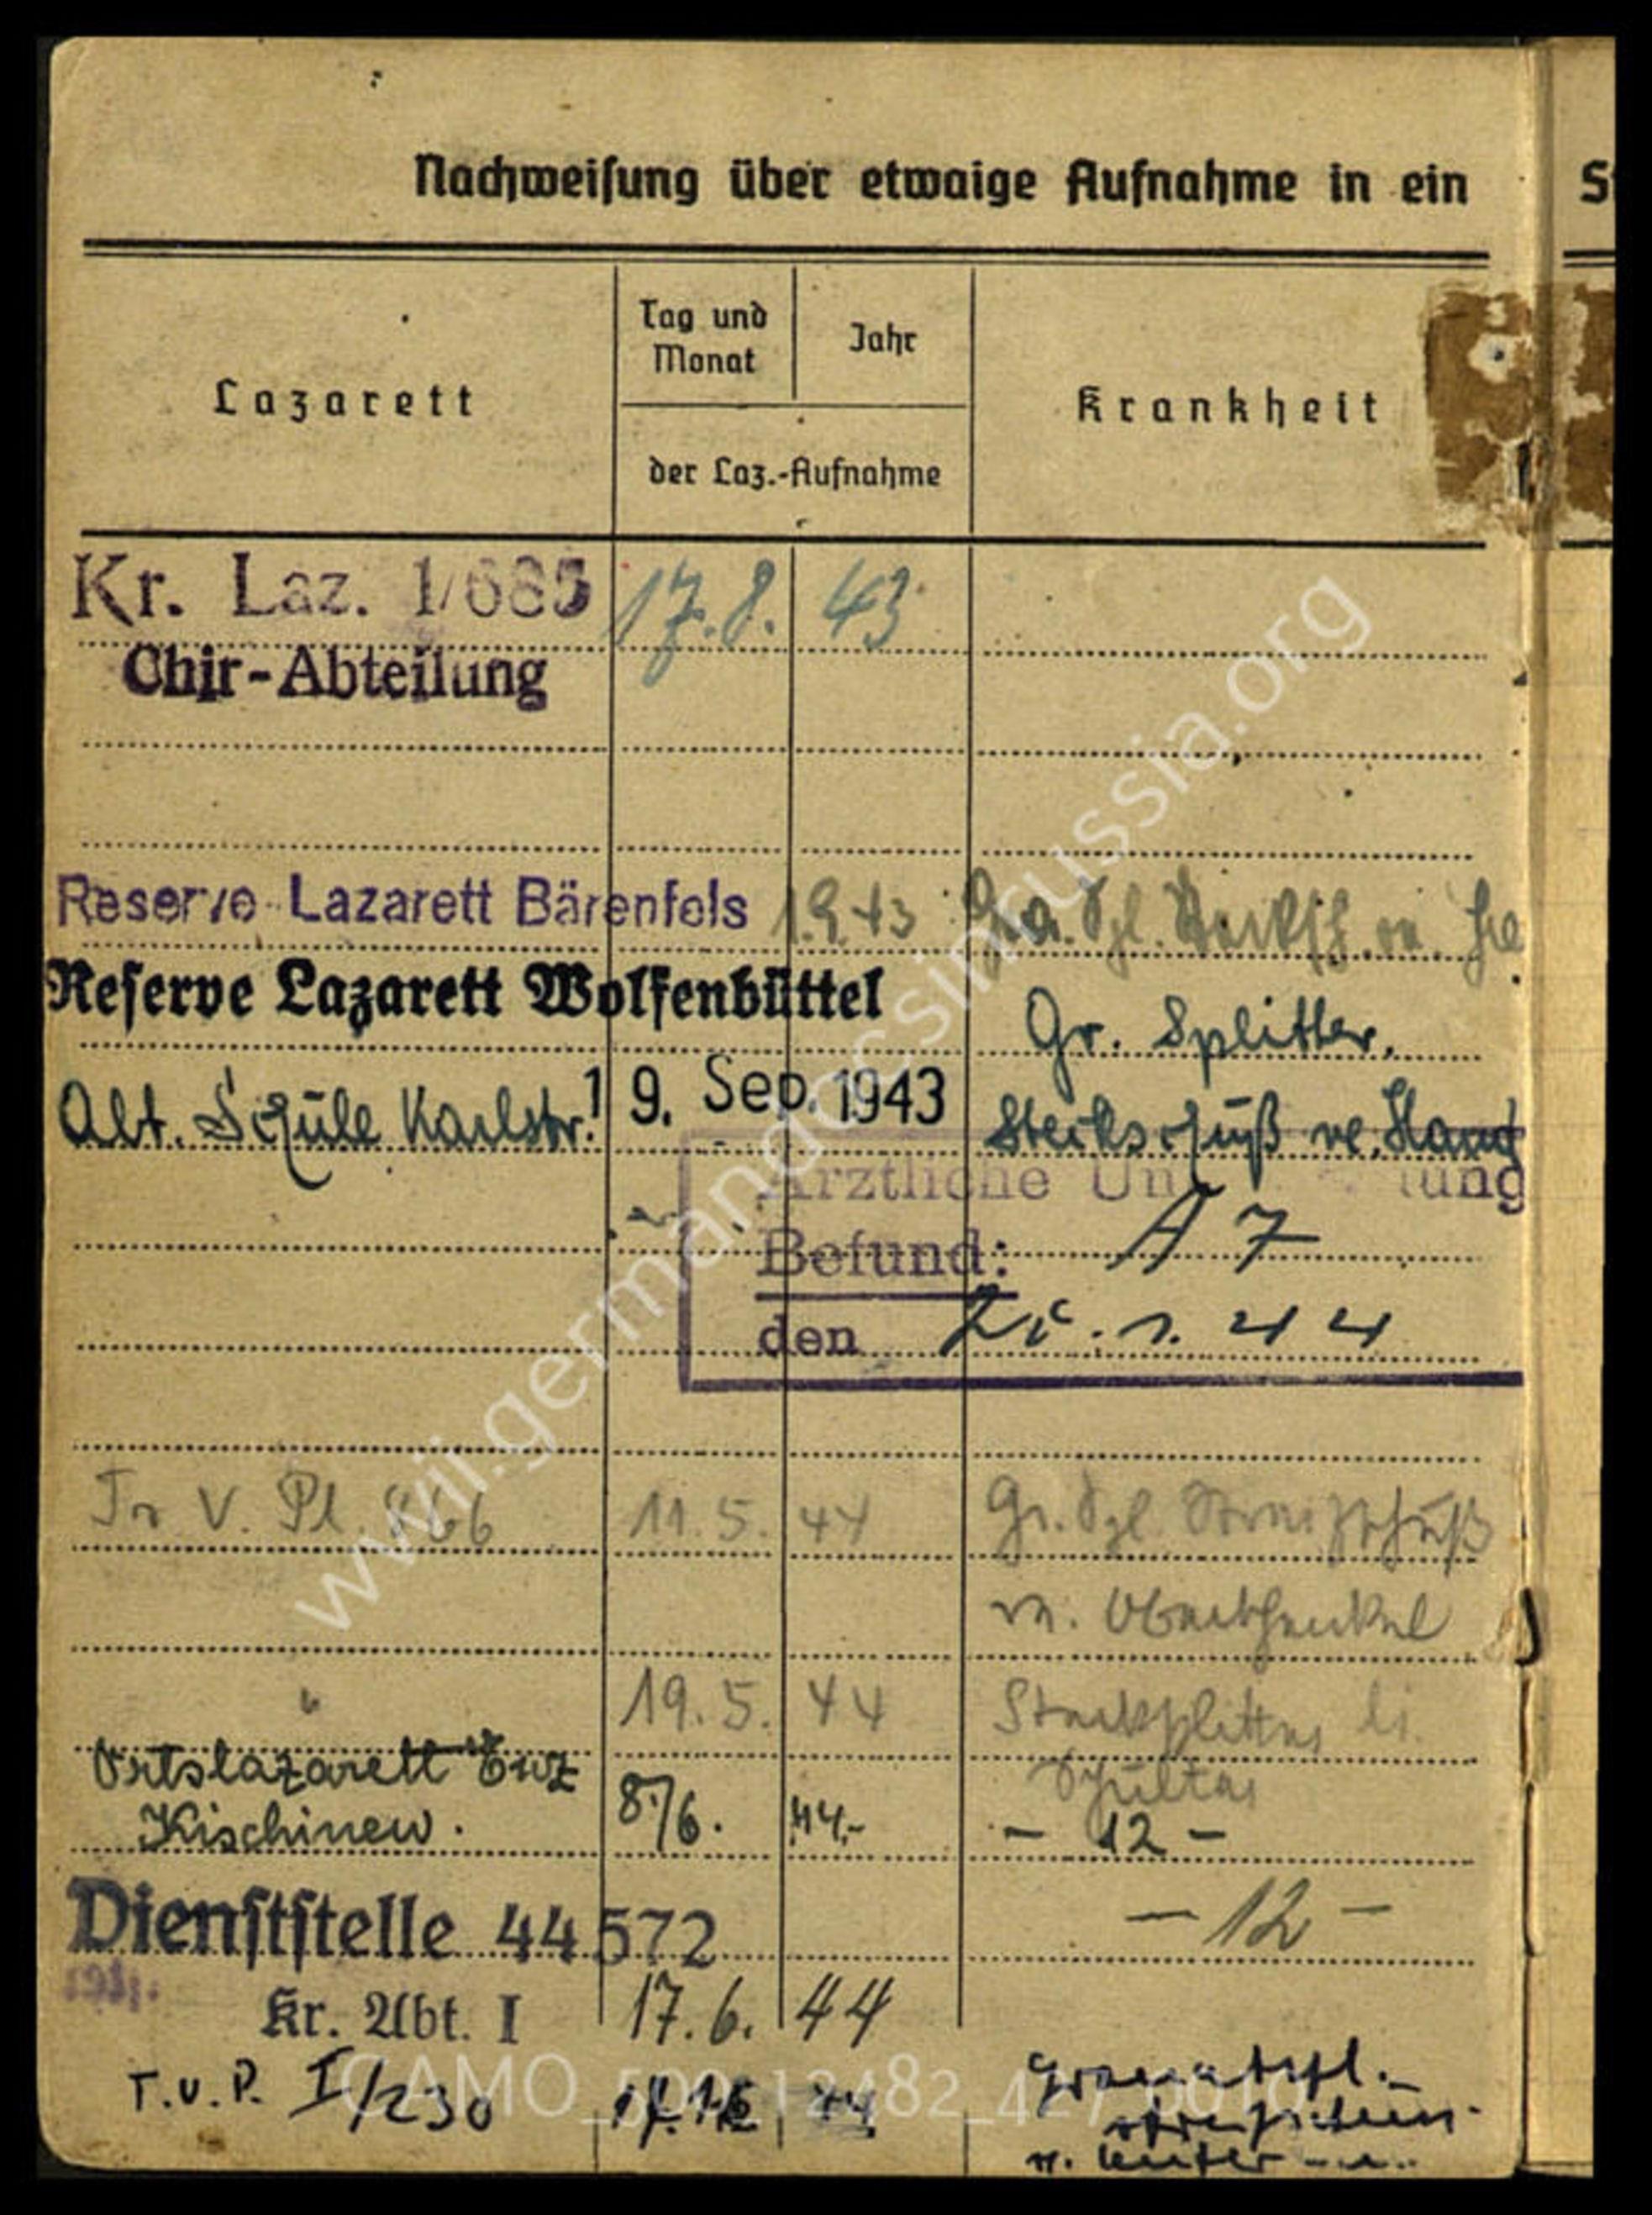 Nachweisung über etwaige Aufnahme in ein
Lazarett
Tag und Monat
Jahr
der Laz.-Aufnahme
Krankheit
Kr. Laz. 1/685 17.8. 43
Chir-Abteilung
Reserve-Lazarett Bärenfels 1.9.43
Reserve Lazarett Wolfenbüttel Gr. Splitter,
Abt. Schule Karlstr. 19. Sep. 1943 Steckschuß re. Hand
Ärztliche
Befund: A 7
den 1. 44
Tr V. Pl. 11. 5. 44 Gr. Spl. Streifschuß
re. Oberschenkel
" 19. 5. 44 Stecksplitter li.
Schulter
Ortslazarett
Kischinew. 8./6. 44.- - 12 -
Dienststelle 44 572 - 12 -
Kr. Abt. I 17. 6. 44
T.V.P. I/230 44 Granatspl.-
www.germandocsinrussia.org